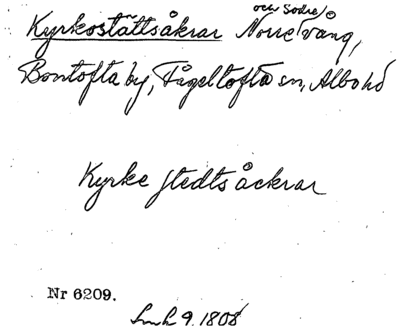 Kyrkostättsåkrar Norre och Södre vång,
Bontofta by, Fågeltofta sn, Albo hd
Kyrke stedts åckrar
Nr 6209.
9. 1808